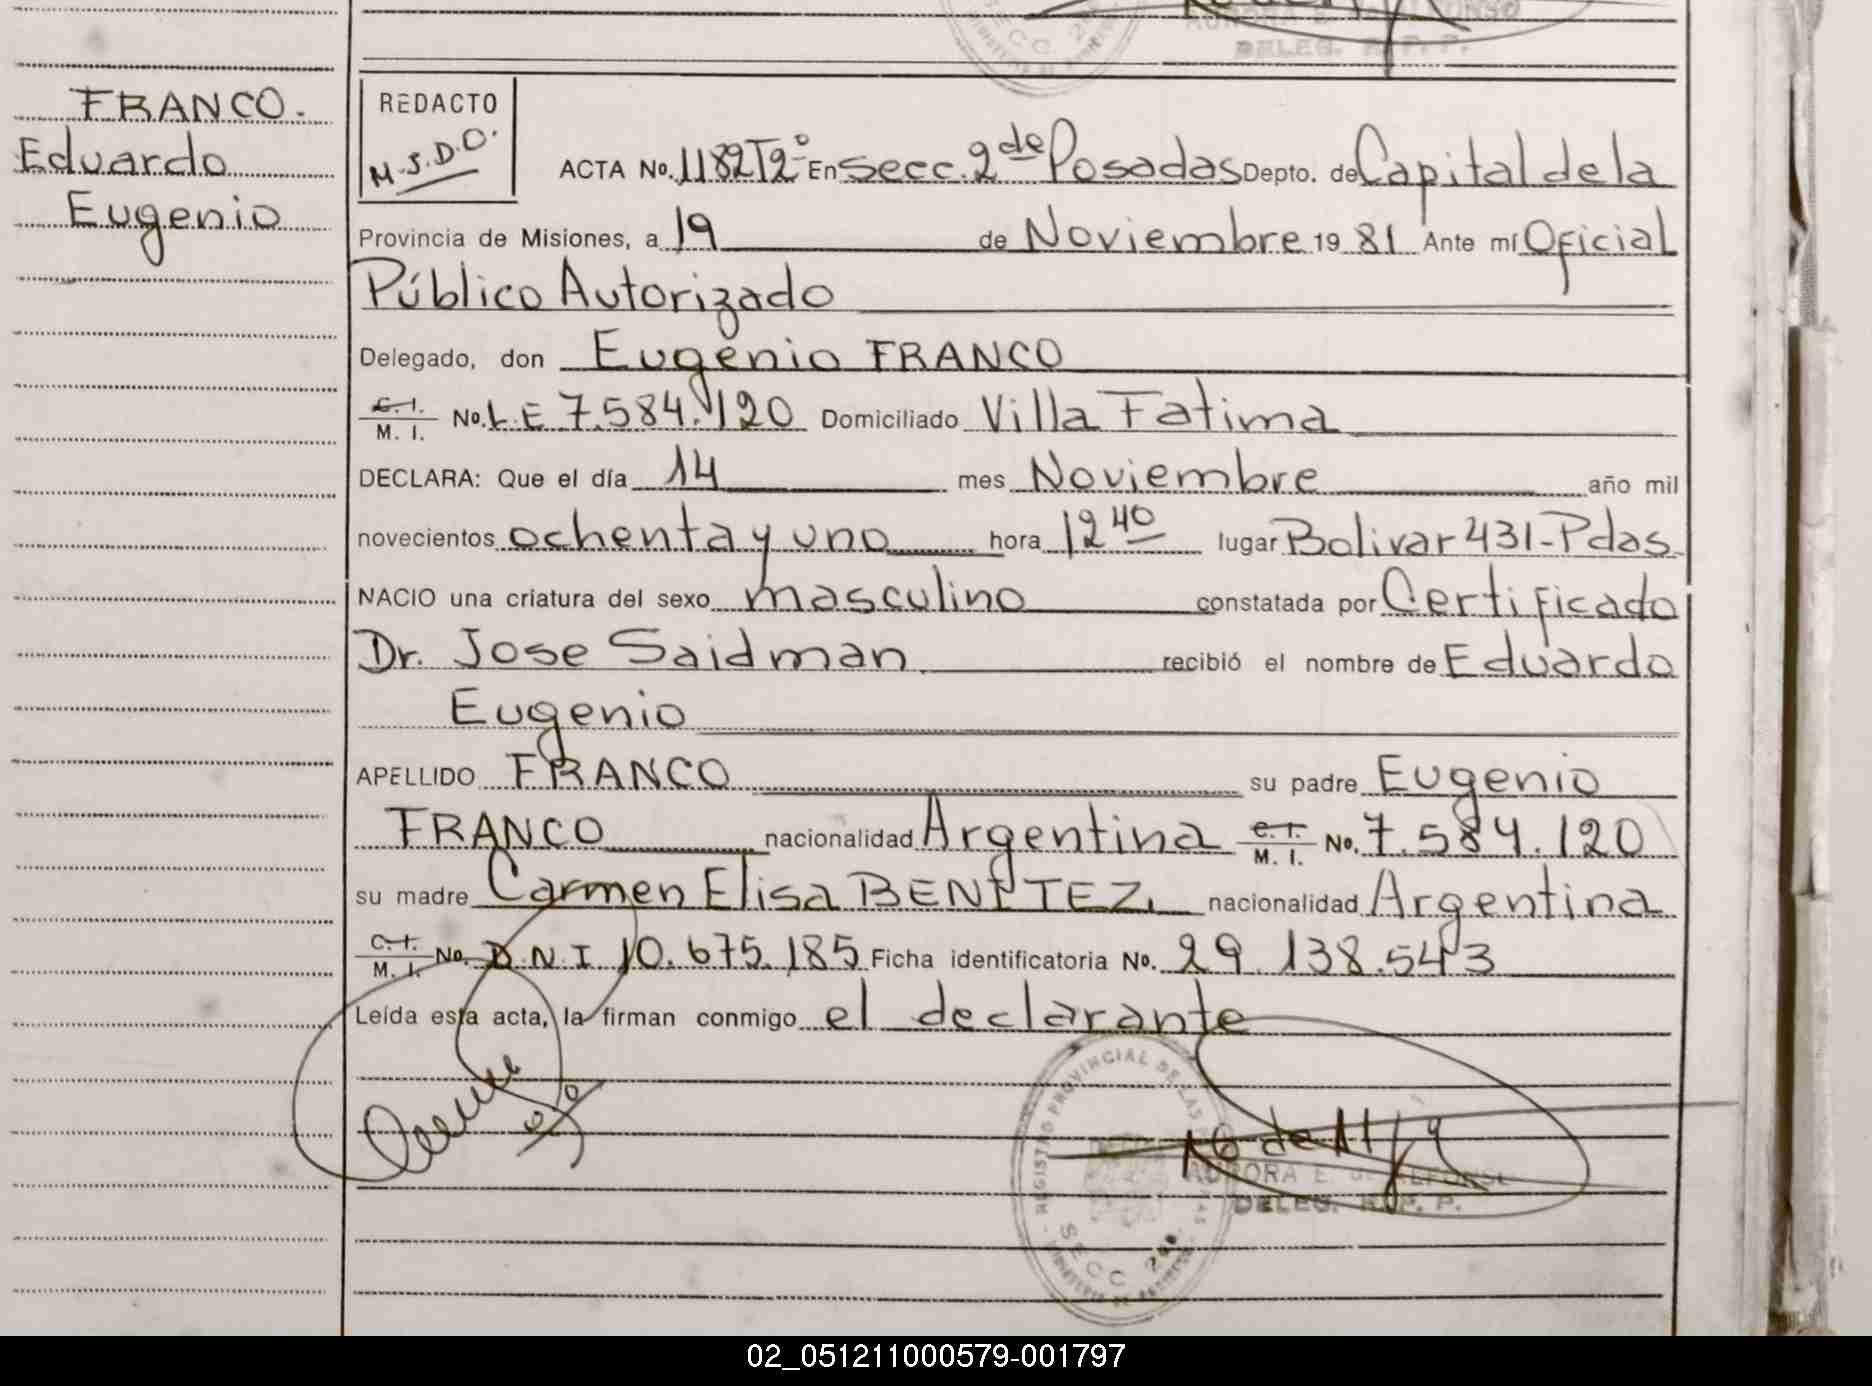 DELEG. R. P. P.
FRANCO.
Eduardo
Eugenio
REDACTO
M.S.D.O.
ACTA No. 1182 T2º En secc. 2de Posadas Depto. de Capital de la
Provincia de Misiones, a 19 de Noviembre 1981 Ante mí Oficial
Público Autorizado
Delegado, don Eugenio FRANCO
C.I. M. I. No. L.E 7.584.120 Domiciliado Villa Fatima
DECLARA: Que el día 14 mes Noviembre año mil
novecientos ochenta y uno hora 12 40 lugar Bolivar 431-Pdas.
NACIO una criatura del sexo masculino constatada por Certificado
Dr. Jose Saidman recibió el nombre de Eduardo
Eugenio
APELLIDO FRANCO su padre Eugenio
FRANCO nacionalidad Argentina C.I. M. I. No. 7.584.120
su madre Carmen Elisa BENITEZ, nacionalidad Argentina
C.I. M. I. No. D.N.I. 10.675.185 Ficha identificatoria No. 29.138.543
Leída esta acta, la firman conmigo el declarante
REGISTRO PROVINCIAL DE LAS
SECC 2da
AURORA E. de ALFONSO
DELEG. R. P. P.
02_051211000579-001797